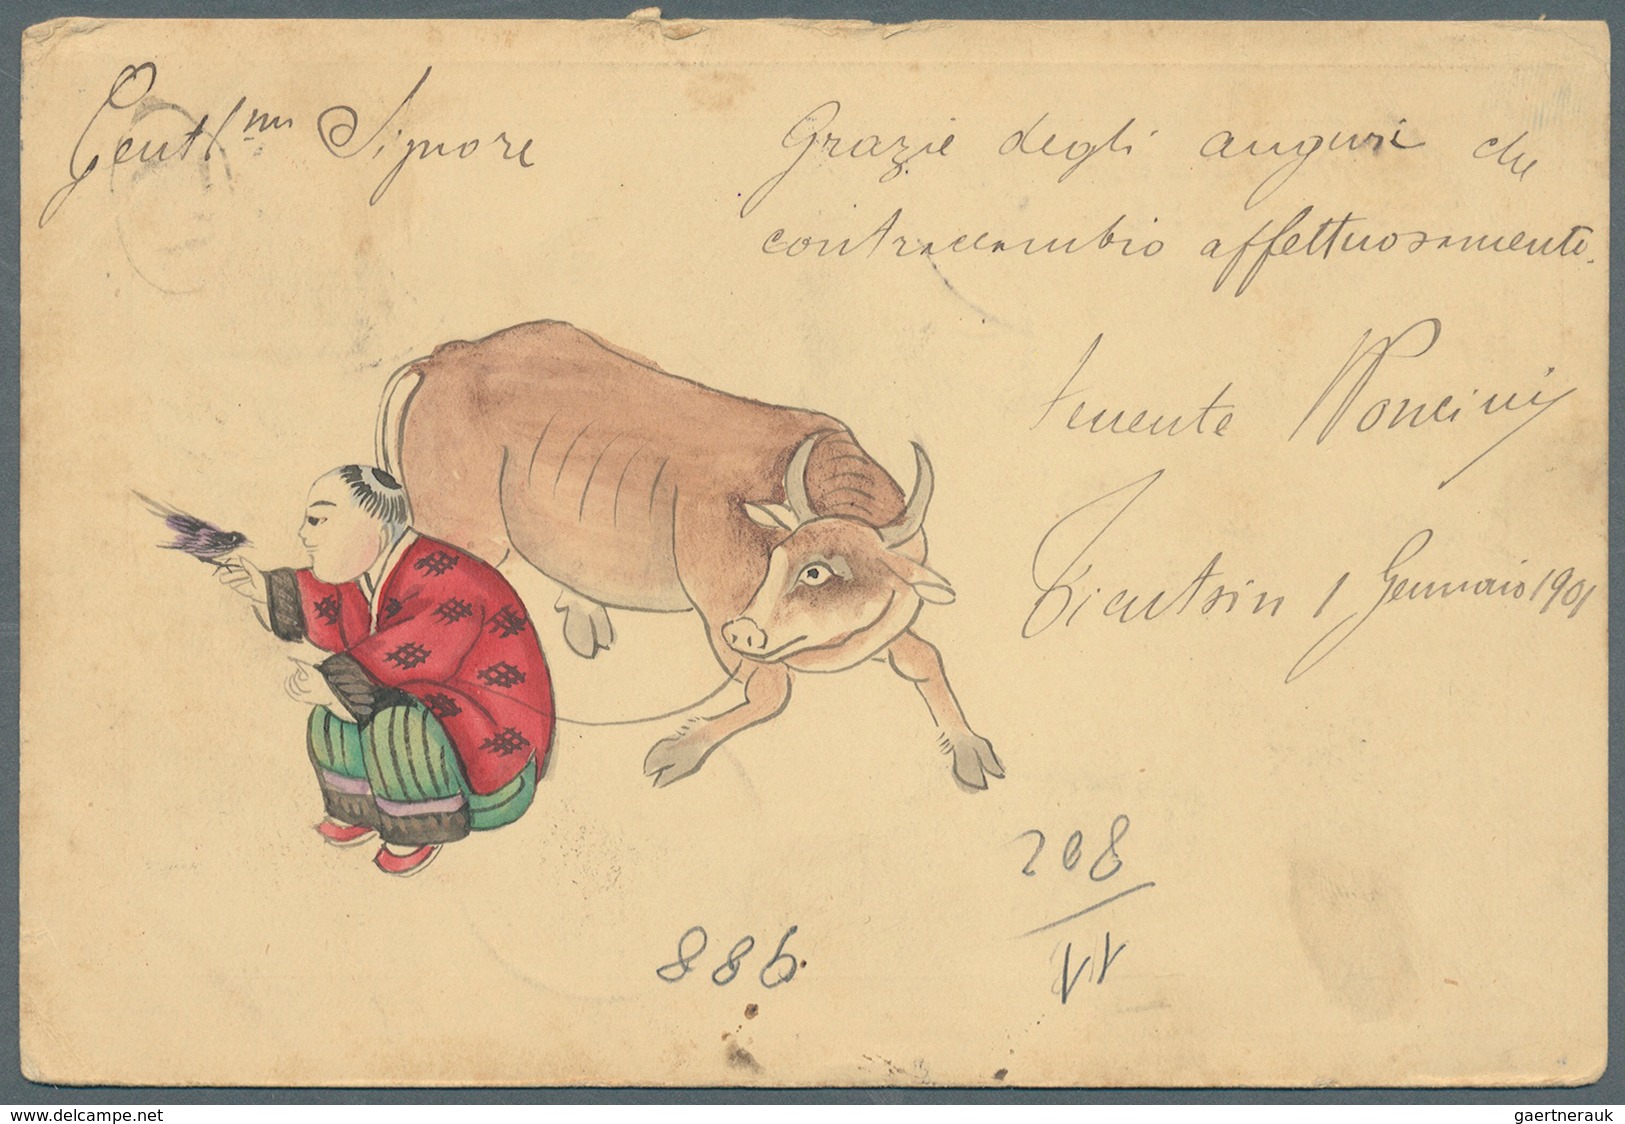 Gent^mo Signore
Grazie degli auguri che
contraccambio affettuosamente.
tenente
Tientsin 1 Gennaio 1901
208
886
www.delcampe.net
gaertnerauk